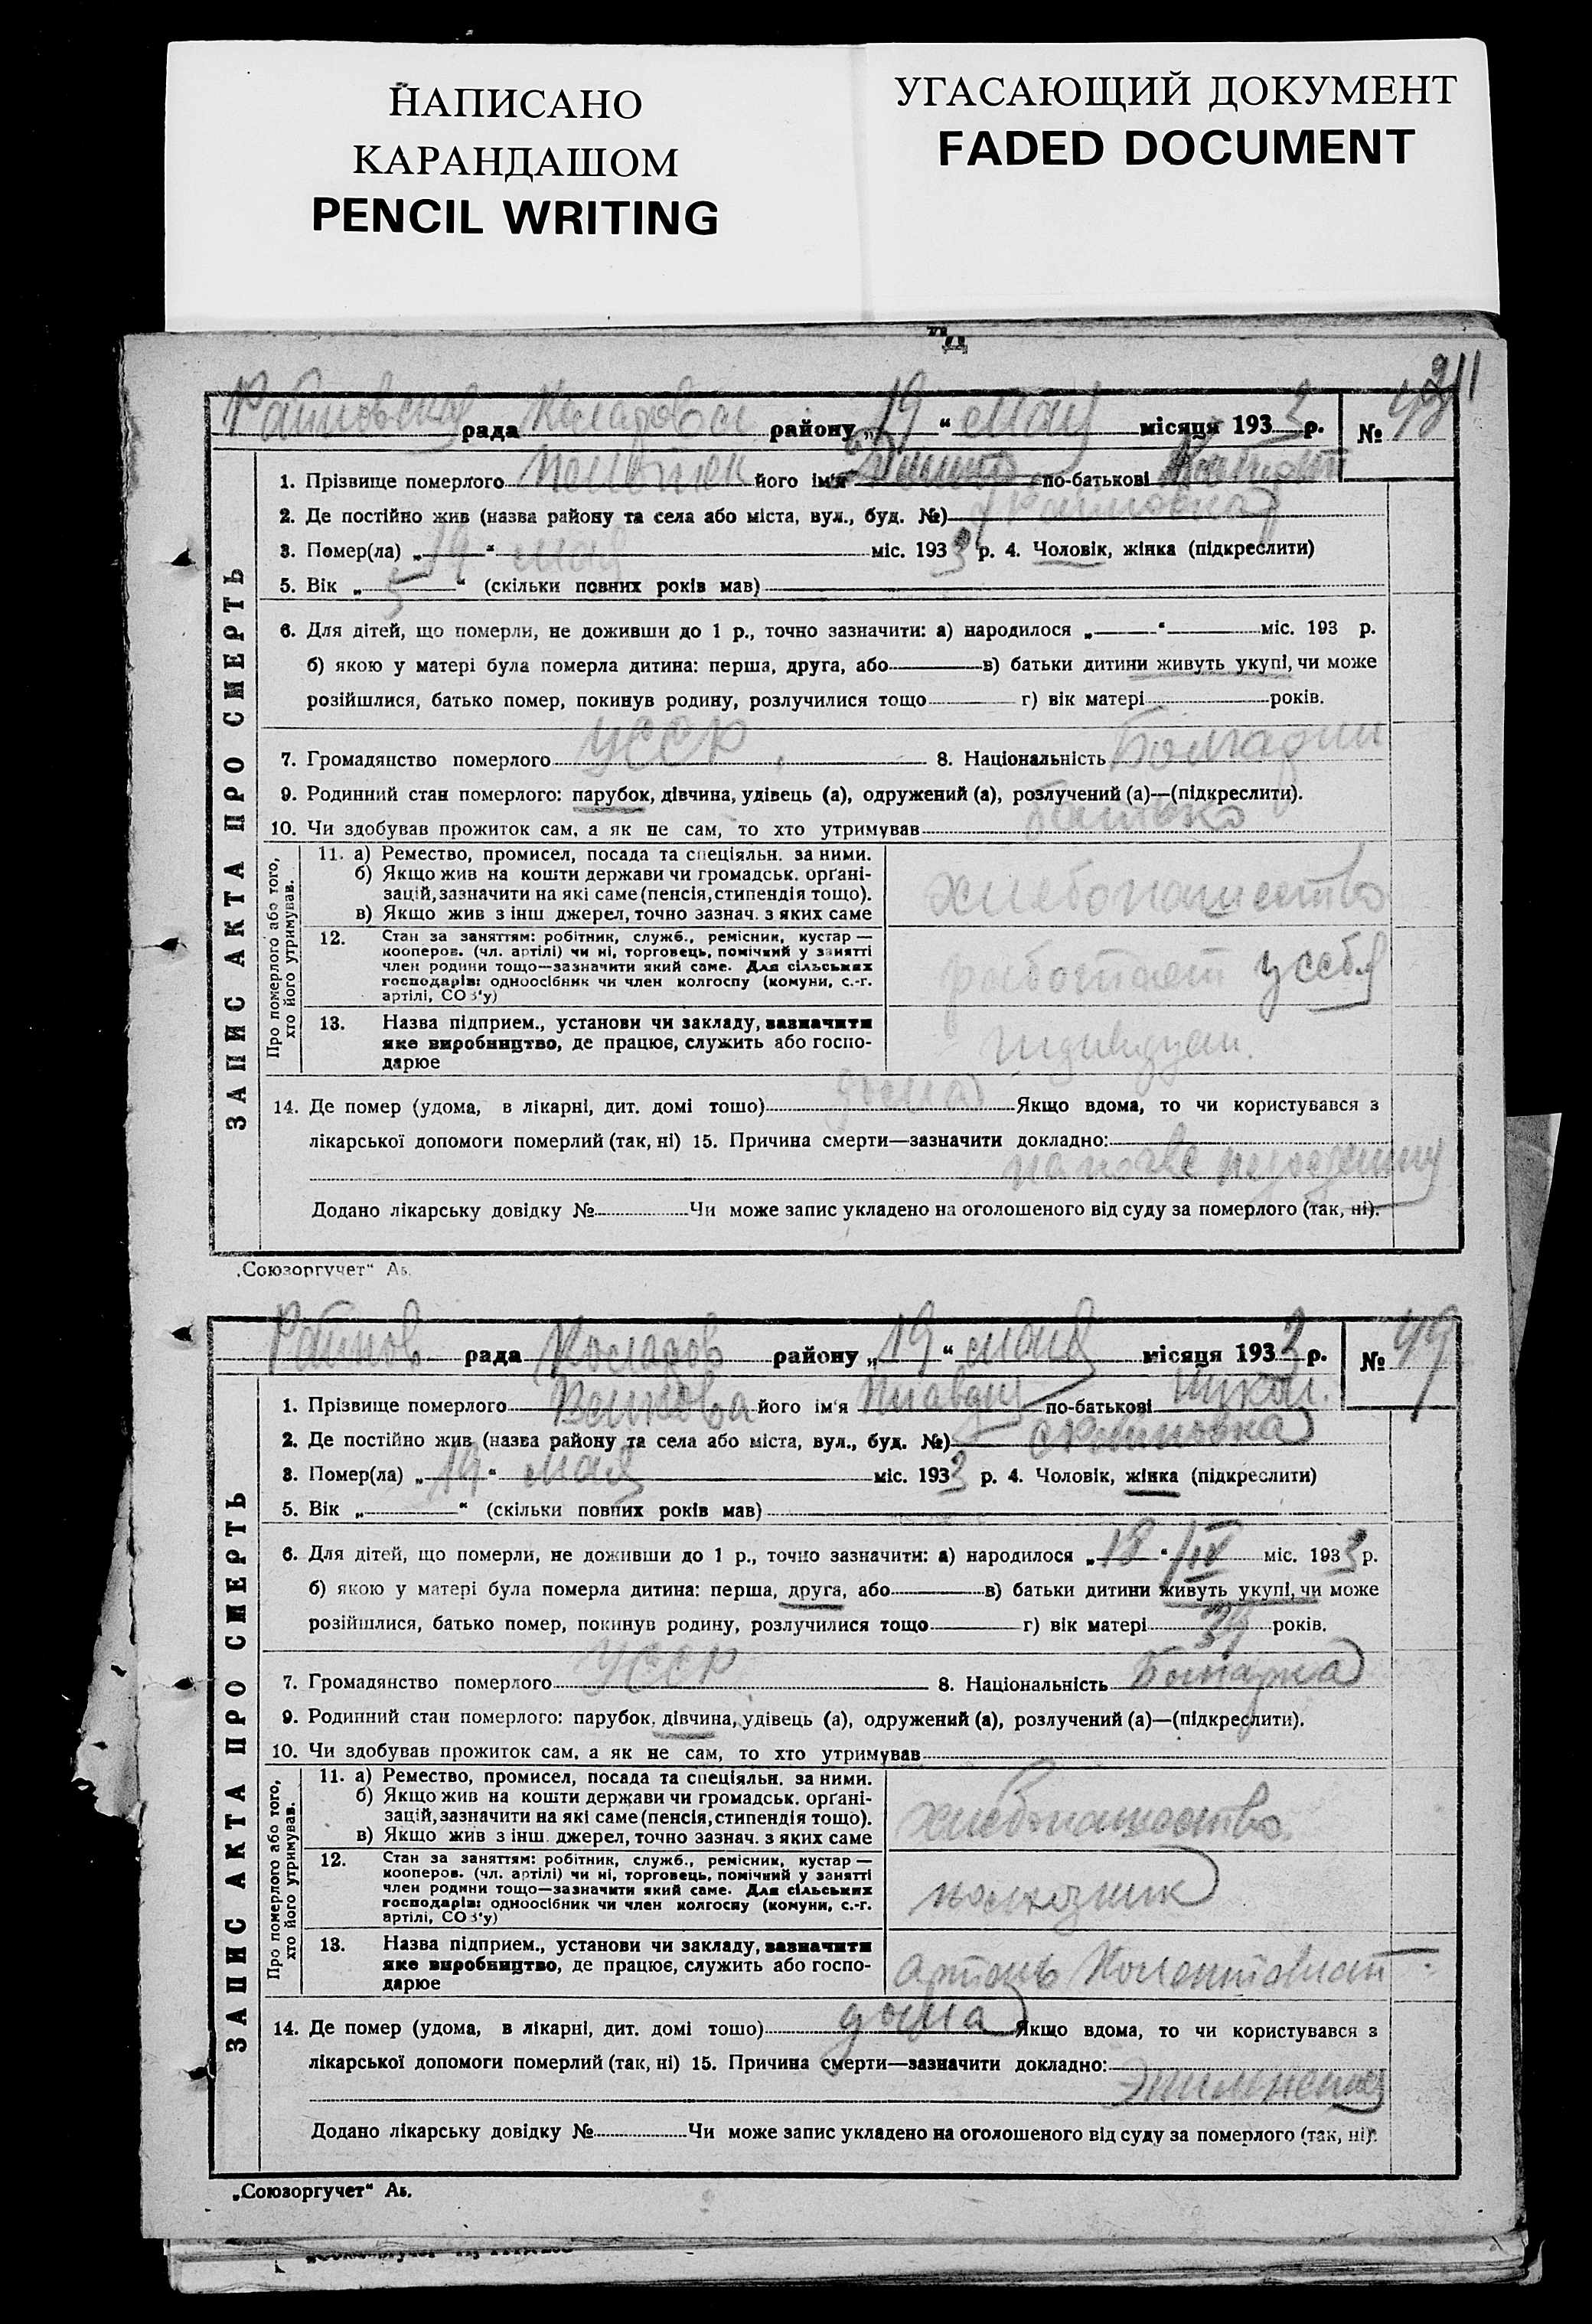 НАПИСАНО
КАРАНДАШОМ
PENCIL WRITING
УГАСАЮЩИЙ ДОКУМЕНТ
FADED DOCUMENT
211
рада району „19“ мая місяця 1933 р. №
1. Прізвище померлого його ім'я по-батькові
2. Де постійно жив (назва району та села або міста, вул., буд. №)
3. Помер(ла) „19“ мая міс. 1933 р. 4. Чоловік, жінка (підкреслити)
5. Вік „5“ (скільки повних років мав)
6. Для дітей, що померли, не доживши до 1 р., точно зазначити: а) народилося „ “ міс. 193 р.
б) якою у матері була померла дитина: перша, друга, або в) батьки дитини живуть укупі, чи може
розійшлися, батько помер, покинув родину, розлучилися тощо г) вік матері років.
7. Громадянство померлого УССР 8. Національність
9. Родинний стан померлого: парубок, дівчина, удівець (а), одружений (а), розлучений (а)—(підкреслити).
10. Чи здобував прожиток сам, а як не сам, то хто утримував батько
ЗАПИС АКТА ПРО СМЕРТЬ
Про померлого або того,
хто його утримував.
11. а) Ремество, промисел, посада та спеціяльн. за ними.
б) Якщо жив на кошти держави чи громадськ. орґані-
зацій, зазначити на які саме (пенсія, стипендія тощо).
в) Якщо жив з інш джерел, точно зазнач. з яких саме
хлебопашество
12. Стан за заняттям: робітник, служб., ремісник, кустар —
кооперов. (чл. артілі) чи ні, торговець, помічний у занятті
член родини тощо—зазначити який саме. Для сільських
господарів: одноосібник чи член колгоспу (комуни, с.-г.
артілі, СОЗ'у)
работает у себя
13. Назва підприєм., установи чи закладу, зазначити
яке виробництво, де працює, служить або госпо-
дарює
14. Де помер (удома, в лікарні, дит. домі тошо) дома Якщо вдома, то чи користувався з
лікарської допомоги померлий (так, ні) 15. Причина смерти—зазначити докладно:
на почве
Додано лікарську довідку № Чи може запис укладено на оголошеного від суду за померлого (так, ні).
„Союзоргучет“ Аь.
рада району „19“ мая місяця 1933 р. № 49
1. Прізвище померлого його ім'я по-батькові Никол.
2. Де постійно жив (назва району та села або міста, вул., буд. №)
3. Помер(ла) „19“ мая міс. 1933 р. 4. Чоловік, жінка (підкреслити)
5. Вік „ “ (скільки повних років мав)
6. Для дітей, що померли, не доживши до 1 р., точно зазначити: а) народилося „18“ IV міс. 1933 р.
б) якою у матері була померла дитина: перша, друга, або в) батьки дитини живуть укупі, чи може
розійшлися, батько помер, покинув родину, розлучилися тощо г) вік матері років.
7. Громадянство померлого УССР 8. Національність Болгарка
9. Родинний стан померлого: парубок, дівчина, удівець (а), одружений (а), розлучений (а)—(підкреслити).
10. Чи здобував прожиток сам, а як не сам, то хто утримував
ЗАПИС АКТА ПРО СМЕРТЬ
Про померлого або того,
хто його утримував.
11. а) Ремество, промисел, посада та спеціяльн. за ними.
б) Якщо жив на кошти держави чи громадськ. орґані-
зацій, зазначити на які саме (пенсія, стипендія тощо).
в) Якщо жив з інш. джерел, точно зазнач. з яких саме
хлебопашество
12. Стан за заняттям: робітник, служб., ремісник, кустар —
кооперов. (чл. артілі) чи ні, торговець, помічний у занятті
член родини тощо—зазначити який саме. Для сільських
господарів: одноосібник чи член колгоспу (комуни, с.-г.
артілі, СОЗ'у)
колхозник
13. Назва підприєм., установи чи закладу, зазначити
яке виробництво, де працює, служить або госпо-
дарює
артель
14. Де помер (удома, в лікарні, дит. домі тошо) дома Якщо вдома, то чи користувався з
лікарської допомоги померлий (так, ні) 15. Причина смерти—зазначити докладно:
Додано лікарську довідку № Чи може запис укладено на оголошеного від суду за померлого (так, ні).
„Союзоргучет“ Аь.